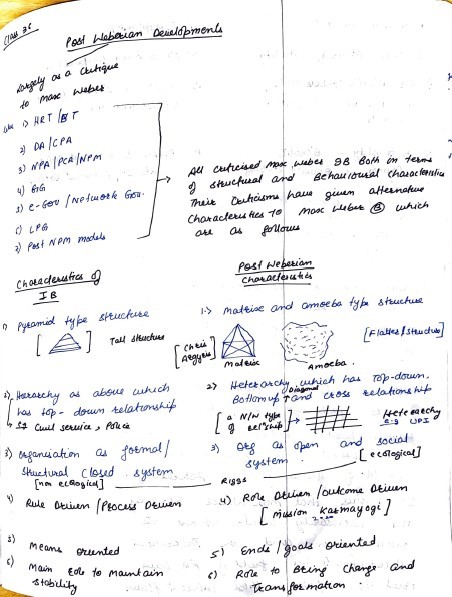 Class 36
Post Weberian Developments
Largely as a Critique
to Max Weber
1) HRT / BT
2) DA/CPA
3) NPA / PCA / NPM
4) GG
5) e-Gov / Network Gov.
6) LPG
7) Post NPM models
All criticised Max Weber IB Both in terms
of structural and Behavioural characteristics
Their Criticisms have given alternative
Characteristics to Max Weber which
are as follows
Characteristics of
IB
Post Weberian
Characteristics
1) Pyramid type structure
Tall structure
1.) Matrixe and amoeba type structure
[Chris Argyris]
Matrixe
Amoeba.
[Flatter structure]
2) Hierarchy as above which
has top-down relationship
Civil service, Police
2) Heterarchy which has Top-down.
Bottom up Diagonal and cross relationship
[a N/W type of relship]
Heterarchy
e.g UPI
3) Organisation as formal/
structural closed system
[non ecological]
Riggs
3) Org as open and social
system.
[ecological]
4) Rule Driven / Process Driven
4) Role Driven / outcome Driven
[mission Karmayogi]
5) Means oriented
5) Ends / goals oriented
6) Main role to maintain
stability
6) Role to Bring change and
Transformation.